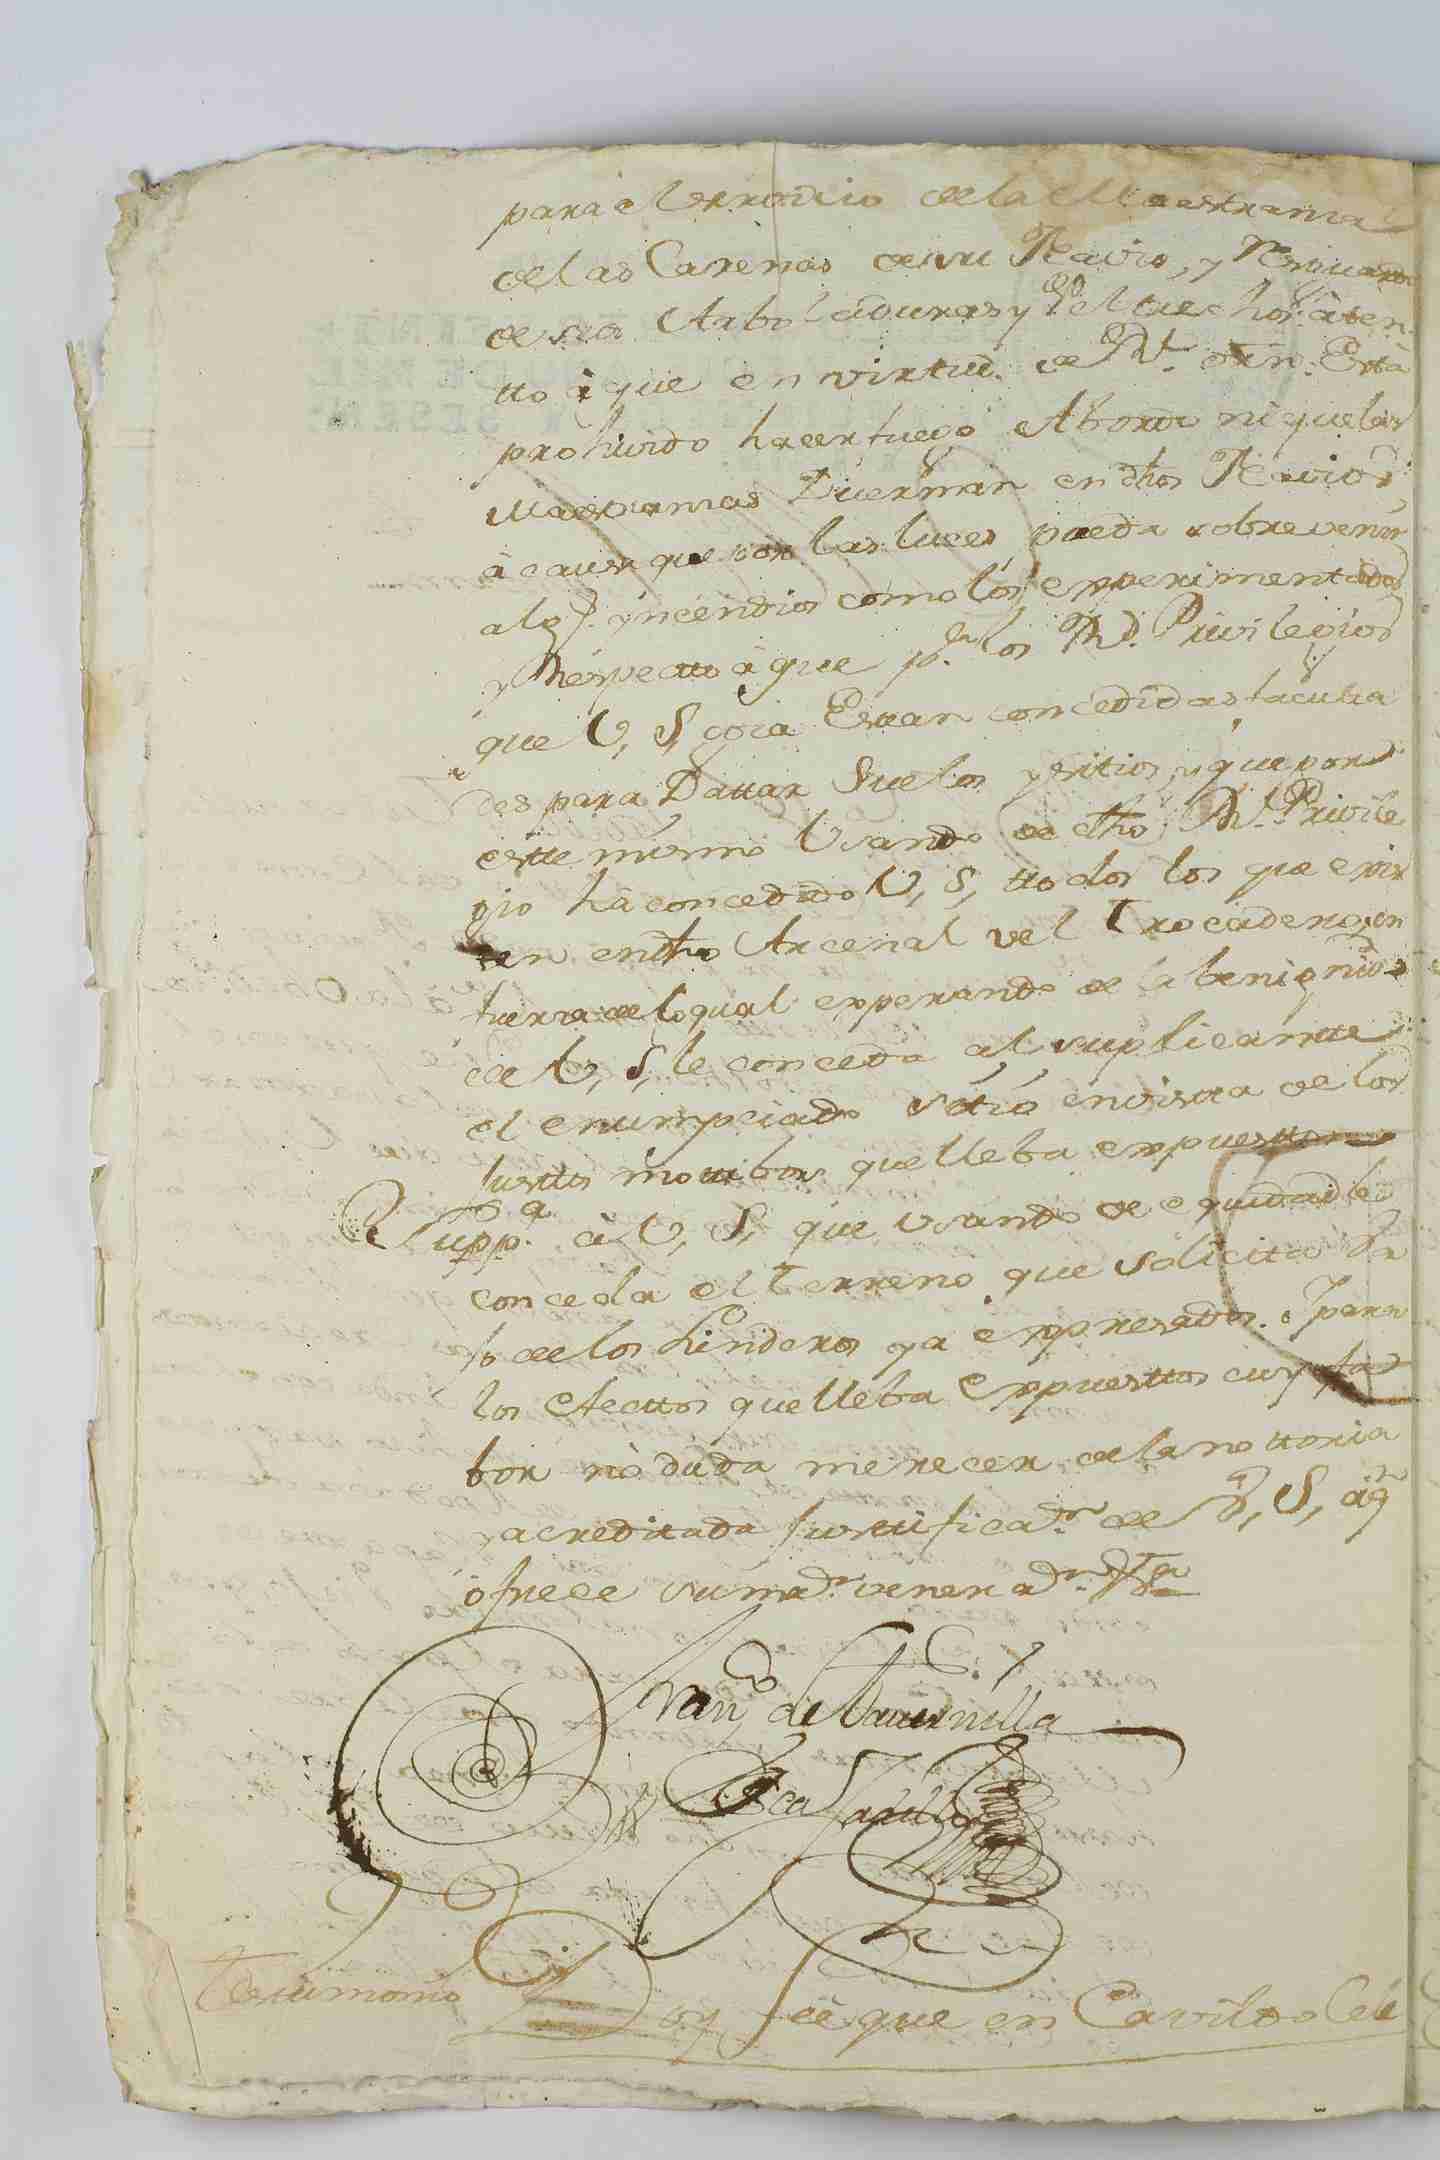 para el servicio de la Maestranza
de las Carenas de su Navio, y Resguardo
de sus Arboladuras y Peltrechos: aten-
tto à que en virtud. de Rl. orn. Está
prohivido hacer fuego A bordo ni que las
Maestranzas Duerman en dhos Navios,
à causa que por las luces pueda sobrevenir
algs. yncendios como los experimentados
y Respecto à que pr. los Rs. Privilegios
que V, S, goza Estan concedidas faculta
des para Dattar Suelos y sitios y que por
este mismo Usando de dho Rl. Privile
gio hà concedido V, S, ttodos los que exis
ten en dho Arcenal del Trocadero, en
fuerza de lo qual esperando de la benignidd.
de V, S, le conceda al suplicantte
el enumpciado sitio en vista de los
Justtos mottibos que lleba expuesttos
Suppca. à V, S, que Usando de equidad le
conceda el Terreno que solicita Ba
jo de los Linderos ya expresados. para
los efecttos que lleba expuesttos cuyo fa
bor no dúda merecer de la nottoria
y acreditada Justtificasn. de V, S, à qn.
ofrece su mar. veneran.
Franco. de Vavernilla
Testimonio Doy feé que en Cavildo Cele